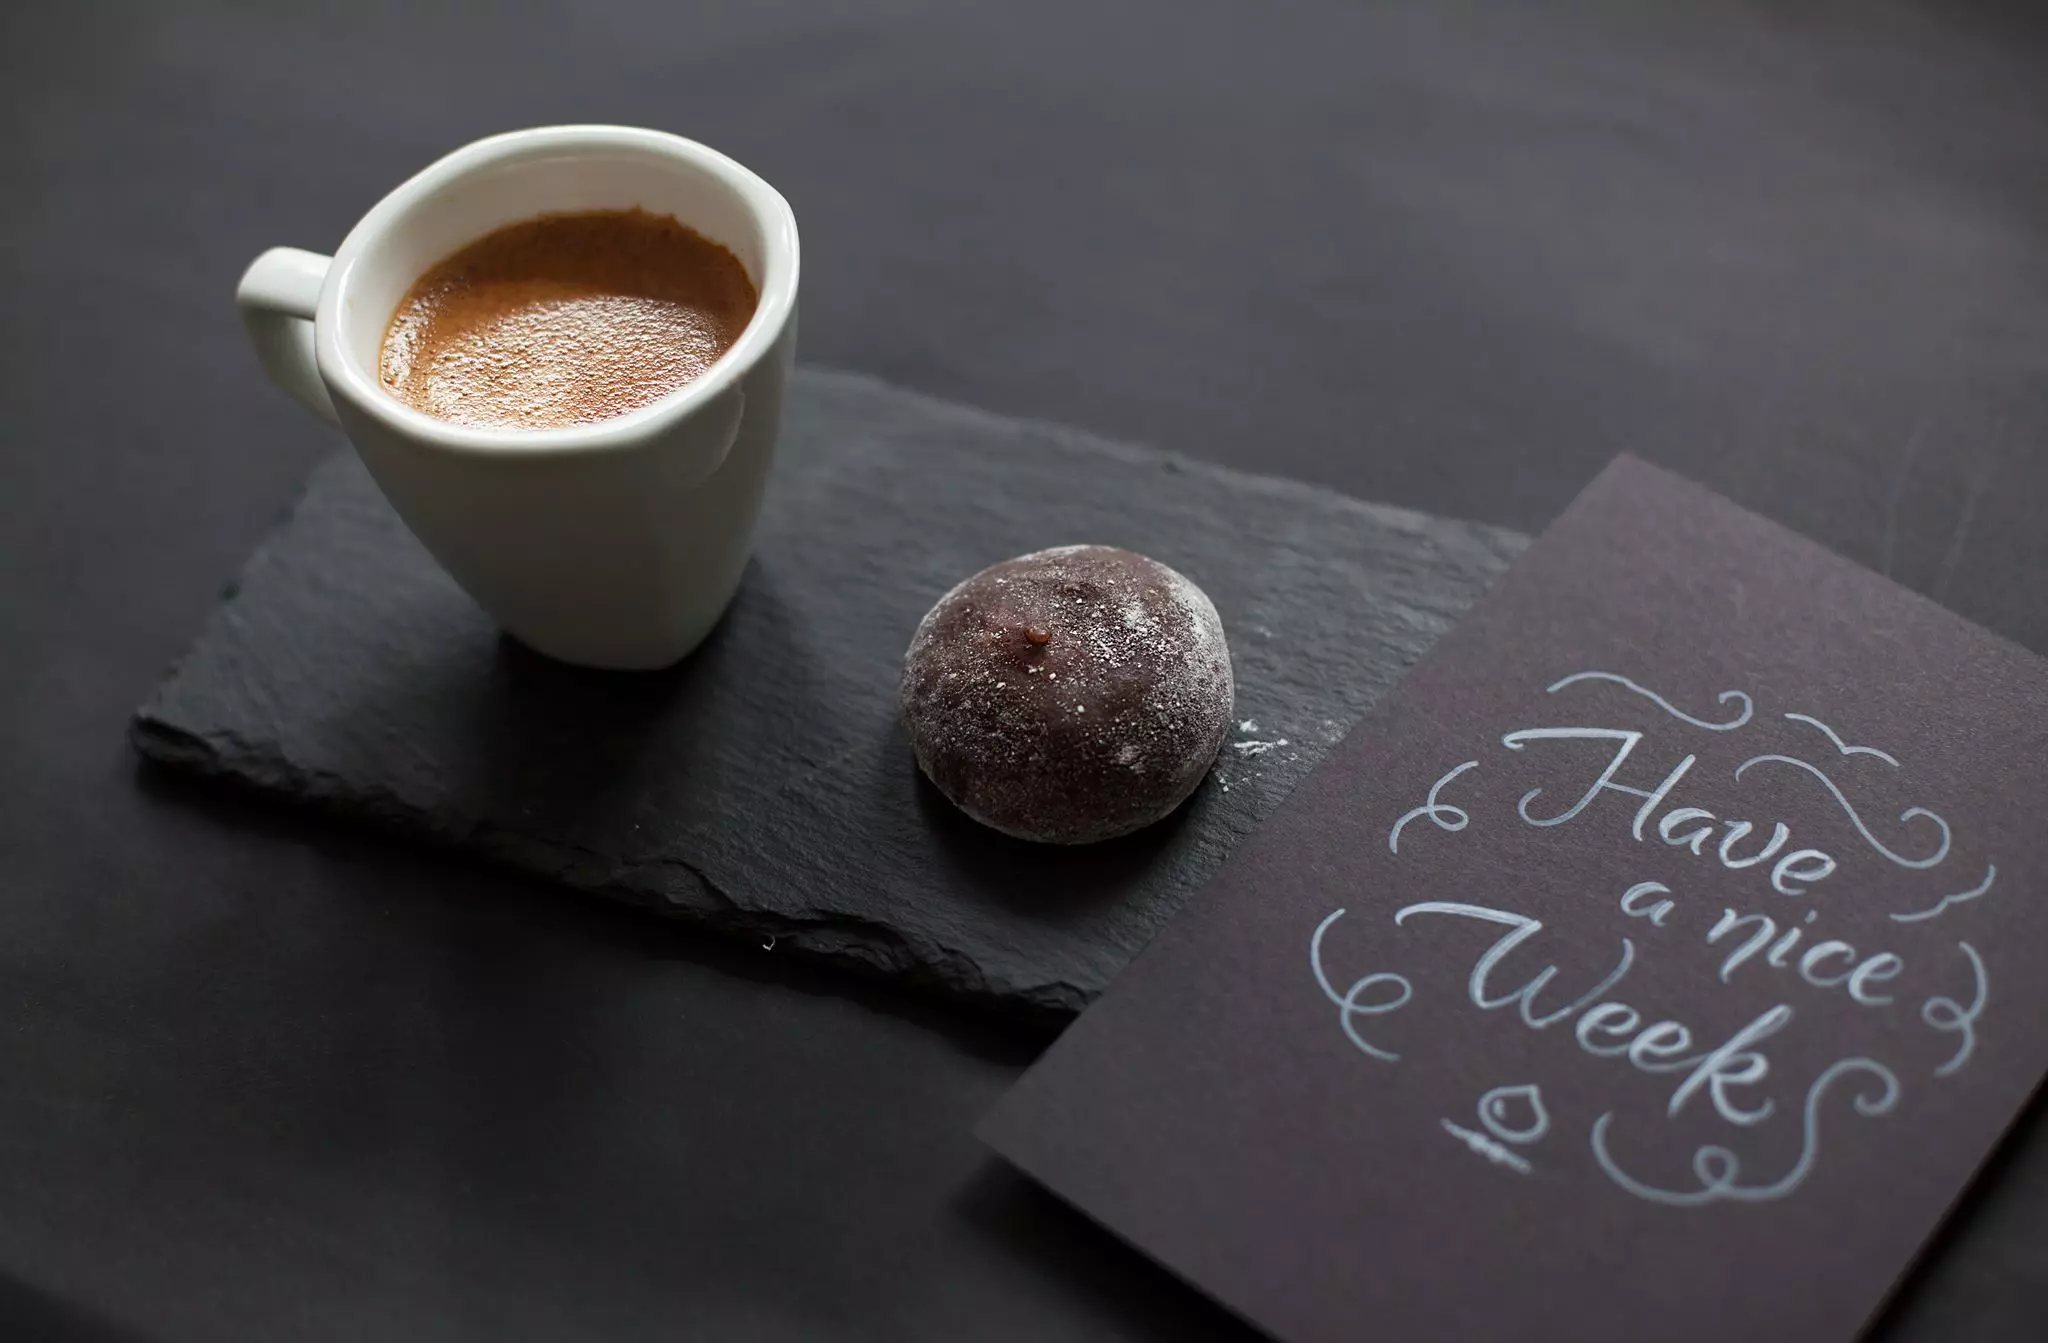 Have
a nice
Week